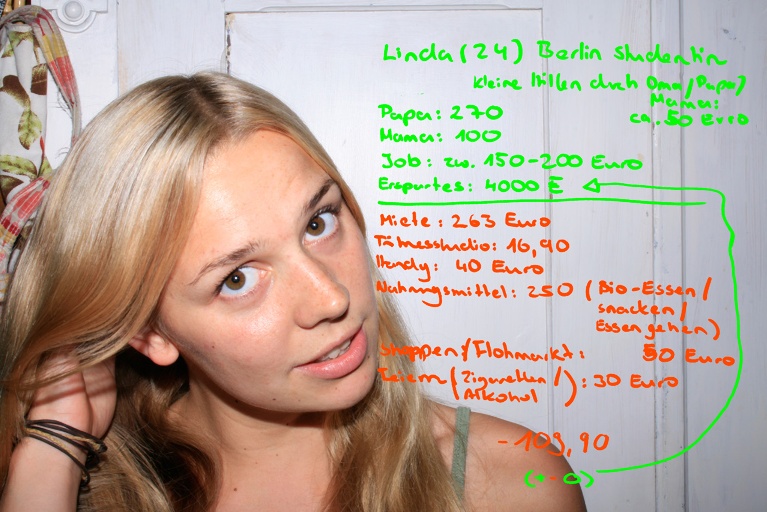 Linda (24) Berlin Studentin
kleine Hilfen durch Oma/Papa/
Mama:
ca. 50 Euro
Papa: 270
Mama: 100
Job: zw. 150-200 Euro
Erspartes: 4000 E
Miete: 263 Euro
Fitnessstudio: 16,90
Handy: 40 Euro
Nahrungsmittel: 250 (Bio-Essen/
snacken/
Essen gehen)
Shoppen/Flohmarkt: 50 Euro
Feiern (Zigaretten/
Alkohol): 30 Euro
-109,90
(+-0)